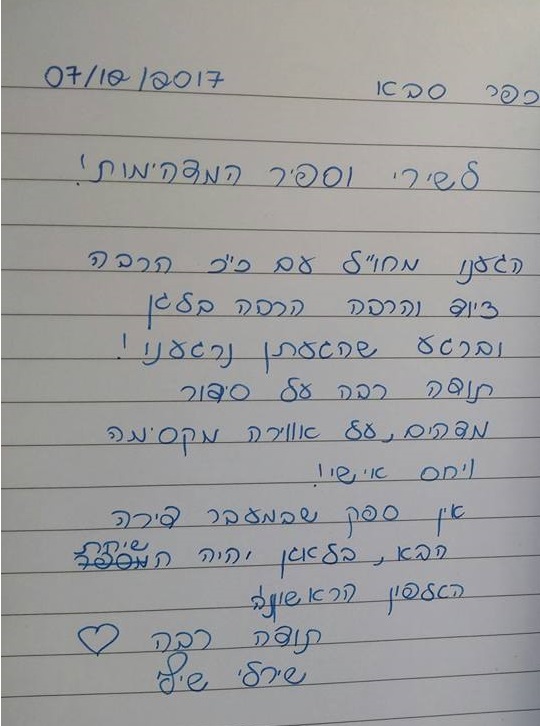 כפר סבא 07/12/2017
לשירי וספיר המדהימות!
הגענו מחו"ל עם כ"כ הרבה
ציוד והרבה הרבה בלגן
וברגע שהגעתן נרגענו!
תודה רבה על סידור
מדהים, על אווירה מקסימה
ויחס אישי!
אין ספק שבמעבר דירה
הבא, בלאגן יהיה שיחת
הטלפון הראשונה
תודה רבה ♡
שירלי שילי